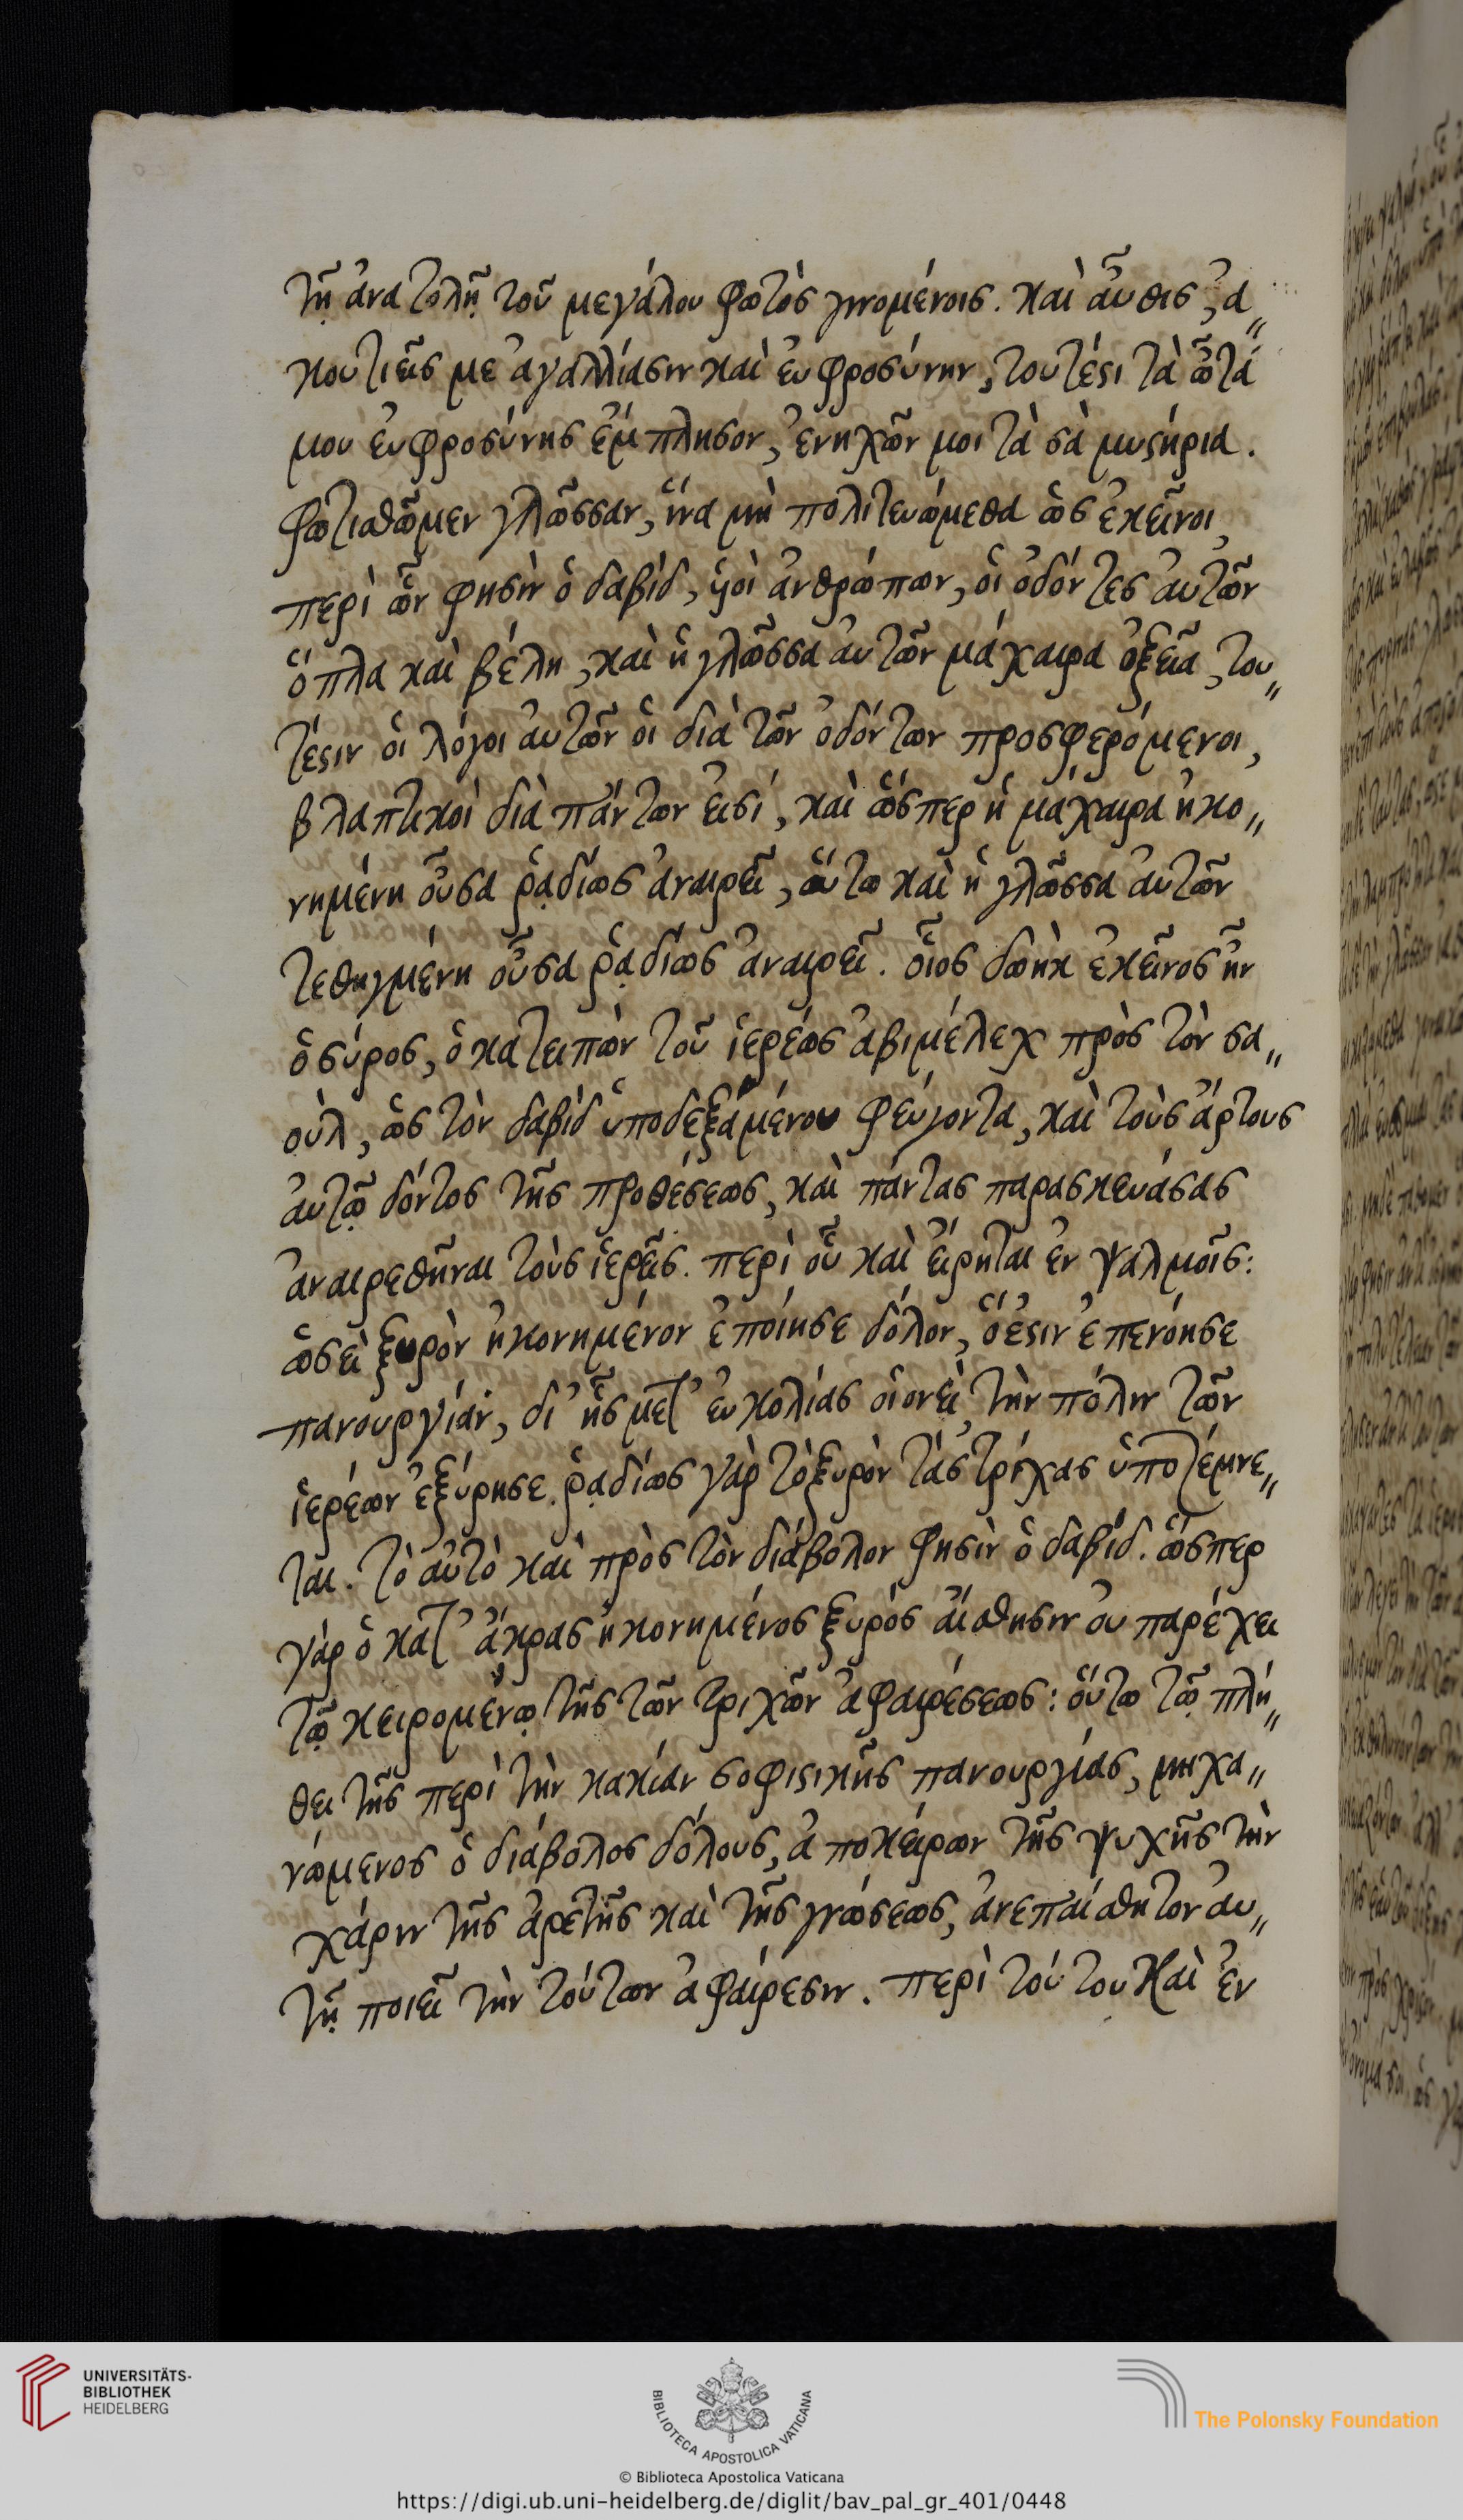 τῇ ἀνατολῇ τοῦ μεγάλου φωτὸς γινομένοις. καὶ αὖθις, ἀ„
κουτιεῖς με ἀγαλλίασιν καὶ εὐφροσύνην, τουτέστι τὰ ὦτά
μου εὐφροσύνης ἔμπλησον, ἐνηχῶν μοι τὰ σὰ μυστήρια.
φωτισθῶμεν γλῶσσαν, ἵνα μὴ πολιτευώμεθα ὡς ἐκεῖνοι,
περὶ ὧν φησὶν ὁ δαβίδ, υἱοὶ ἀνθρώπων, οἱ ὀδόντες αὐτῶν
ὅπλα καὶ βέλη, καὶ ἡ γλῶσσα αὐτῶν μάχαιρα ὀξεῖα, του„
τέστιν οἱ λόγοι αὐτῶν οἱ διὰ τῶν ὀδόντων προσφερόμενοι,
βλαπτικοὶ διὰ πάντων εἰσί, καὶ ὥσπερ ἡ μάχαιρα ἠκο„
νημένη οὖσα ῥᾳδίως ἀναιρεῖ, οὕτω καὶ ἡ γλῶσσα αὐτῶν
τεθηγμένη οὖσα ῥᾳδίως ἀναιρεῖ. οἷος δωὴκ ἐκεῖνος ἦν
ὁ σύρος, ὁ κατειπὼν τοῦ ἱερέως ἀβιμέλεχ πρὸς τὸν σα„
οὺλ, ὡς τὸν δαβὶδ ὑποδεξαμένου φεύγοντα, καὶ τοὺς ἄρτους
αὐτῷ δόντος τῆς προθέσεως, καὶ πάντας παρασκευάσας
ἀναιρεθῆναι τοὺς ἱερεῖς. περὶ οὗ καὶ εἴρηται ἐν ψαλμοῖς:
ὡσεὶ ξυρὸν ἠκονημένον ἐποίησε δόλον, ὅ ἐστιν ἐπενόησε
πανουργίαν, δι' ἧς μετ' εὐκολίας οἱονεὶ τὴν πόλιν τῶν
ἱερέων ἐξύρησε. ῥᾳδίως γὰρ τὸ ξυρὸν τὰς τρίχας ὑποτέμνε„
ται. τὸ αὐτὸ καὶ πρὸς τὸν διάβολον φησὶν ὁ δαβίδ. ὥσπερ
γὰρ ὁ κατ' ἄκρας ἠκονημένος ξυρὸς αἴσθησιν οὐ παρέχει
τῷ κειρομένῳ τῆς τῶν τριχῶν ἀφαιρέσεως: οὕτω τῷ πλή„
θει τῆς περὶ τὴν κακίαν σοφιστικῆς πανουργίας, μηχα„
νώμενος ὁ διάβολος δόλους, ἀποκείρων τῆς ψυχῆς τὴν
χάριν τῆς ἀρετῆς καὶ τῆς γνώσεως, ἀνεπαίσθητον αὐ„
τῇ ποιεῖ τὴν τούτων ἀφαίρεσιν. περὶ τούτου καὶ ἐν
UNIVERSITÄTS-
BIBLIOTHEK
HEIDELBERG
BIBLIOTECA APOSTOLICA VATICANA
The Polonsky Foundation
© Biblioteca Apostolica Vaticana
https://digi.ub.uni-heidelberg.de/diglit/bav_pal_gr_401/0448